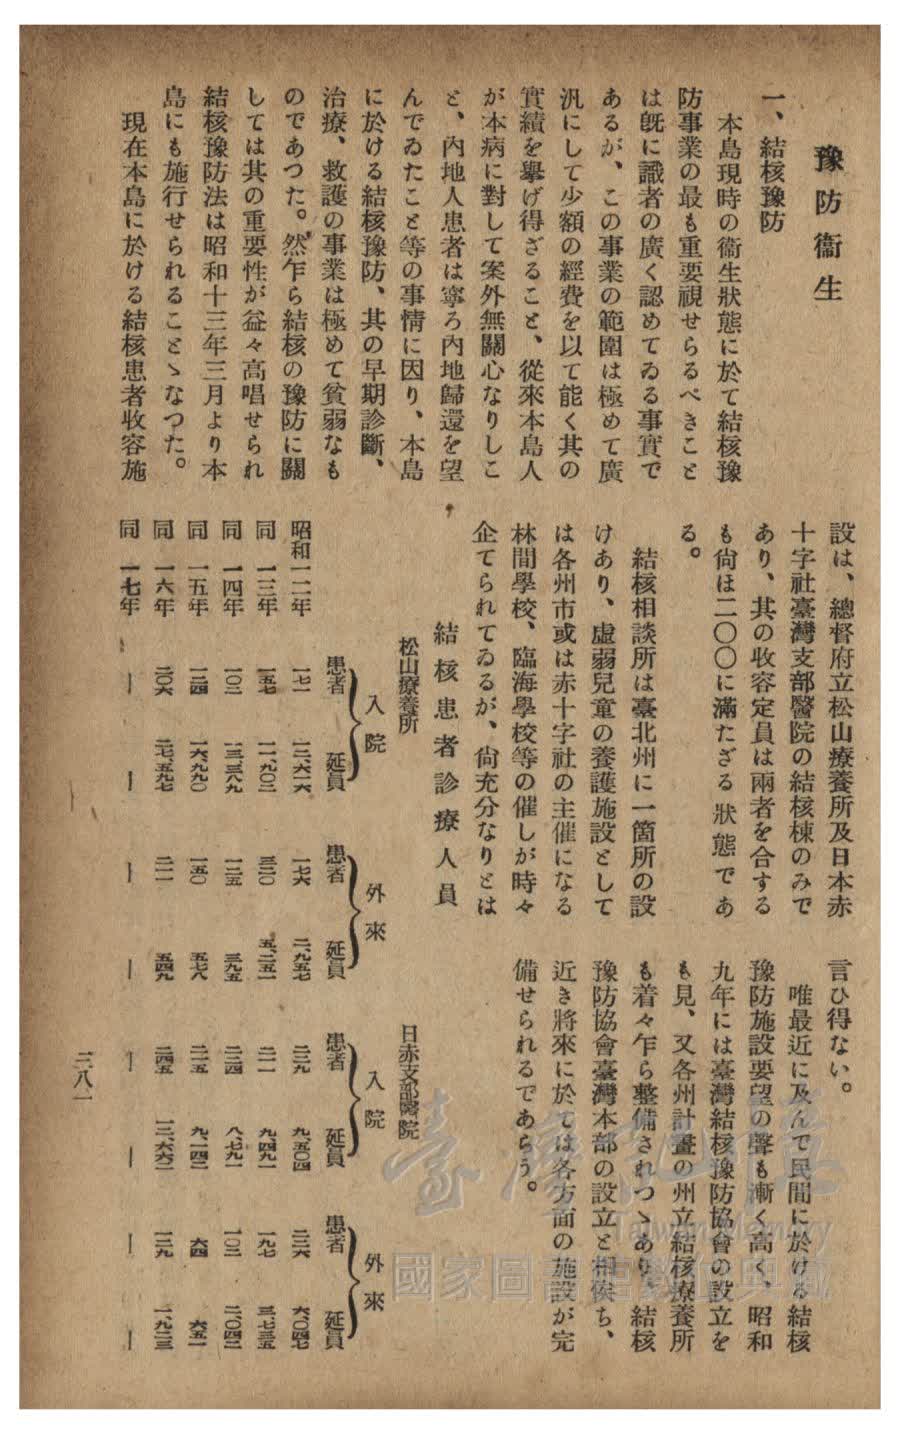 豫防衞生
一、結核豫防
本島現時の衞生狀態に於て結核豫
防事業の最も重要視せらるべきこと
は旣に識者の廣く認めてゐる事實で
あるが、この事業の範圍は極めて廣
汎にして少額の經費を以て能く其の
實績を擧げ得ざること、從來本島人
が本病に對して案外無關心なりしこ
と、內地人患者は寧ろ內地歸還を望
んでゐたこと等の事情に因り、本島
に於ける結核豫防、其の早期診斷、
治療、救護の事業は極めて貧弱なも
のであつた。然乍ら結核の豫防に關
しては其の重要性が益々高唱せられ
結核豫防法は昭和十三年三月より本
島にも施行せられることゝなつた。
現在本島に於ける結核患者收容施
設は、總督府立松山療養所及日本赤
十字社臺灣支部醫院の結核棟のみで
あり、其の收容定員は兩者を合する
も尙ほ二〇〇に滿たざる狀態であ
る。
結核相談所は臺北州に一箇所の設
けあり、虛弱兒童の養護施設として
は各州市或は赤十字社の主催になる
林間學校、臨海學校等の催しが時々
企てられてゐるが、尙充分なりとは
言ひ得ない。
唯最近に及んで民間に於ける結核
豫防施設要望の聲も漸く高く、昭和
九年には臺灣結核豫防協會の設立を
も見、又各州計畫の州立結核療養所
も着々乍ら整備されつゝあり、結核
豫防協會臺灣本部の設立と相俟ち、
近き將來に於ては各方面の施設が完
備せられるであらう。
結核患者診療人員
松山療養所 日赤支部醫院
入院 外來 入院 外來
患者 延員 患者 延員 患者 延員 患者 延員
昭和一二年 一七一 一二、六一六 一七六 二、九五七 二二九 九、五〇四 二二六 六、〇四七
同 一三年 一五七 一一、九〇二 三二〇 五、二五一 二一一 九、四九一 一九七 三、七三五
同 一四年 一〇二 一三、三八九 一二五 三九五 二二四 八、七九一 一〇二 二、〇四二
同 一五年 一二四 一六、九九〇 一五〇 五七八 二一五 九、一四二 六四 六五一
同 一六年 二〇六 二七、五九七 二一一 五四九 二四五 一三、六六二 一二九 一、九二三
同 一七年 — — — — — — — —
三八一
臺灣記憶
Taiwan Memory
國家圖書館數位典藏